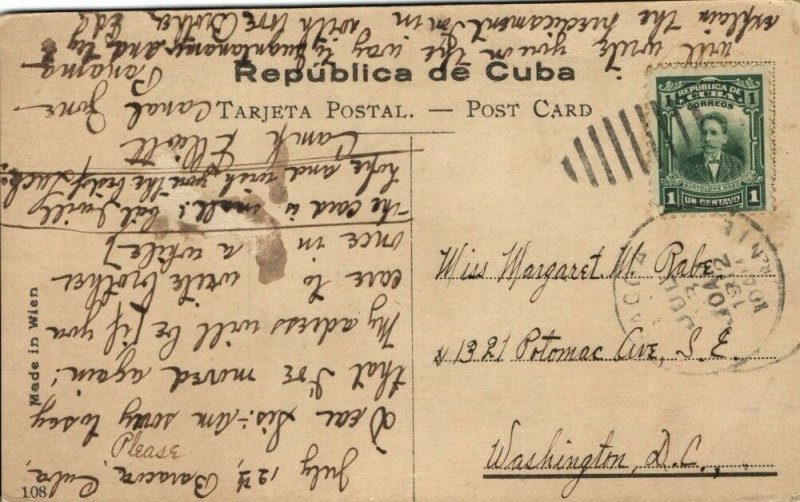 República de Cuba
TARJETA POSTAL. — POST CARD
REPÚBLICA DE
CUBA
CORREOS
1 1
BARTOLOME MASO
1 UN CENTAVO 1
Miss Margaret M. Rabe,
1321 Potomac Ave, S.E.
Washington, D.C.,
Made in Wien
108
Please
July, 12th, Baracoa, Cuba,
Dear Sis:- Am sorry to say
that I've moved again!
My adress will be [if you
care to write brother
once in a while]
Camp Elliott
Canal Zone
Panama
The card is small! but I will
hope and wish you the best of luck.
will write you on the way to Guantanamo and try
explain the predicament I'm in with love Brother Ed
JUL